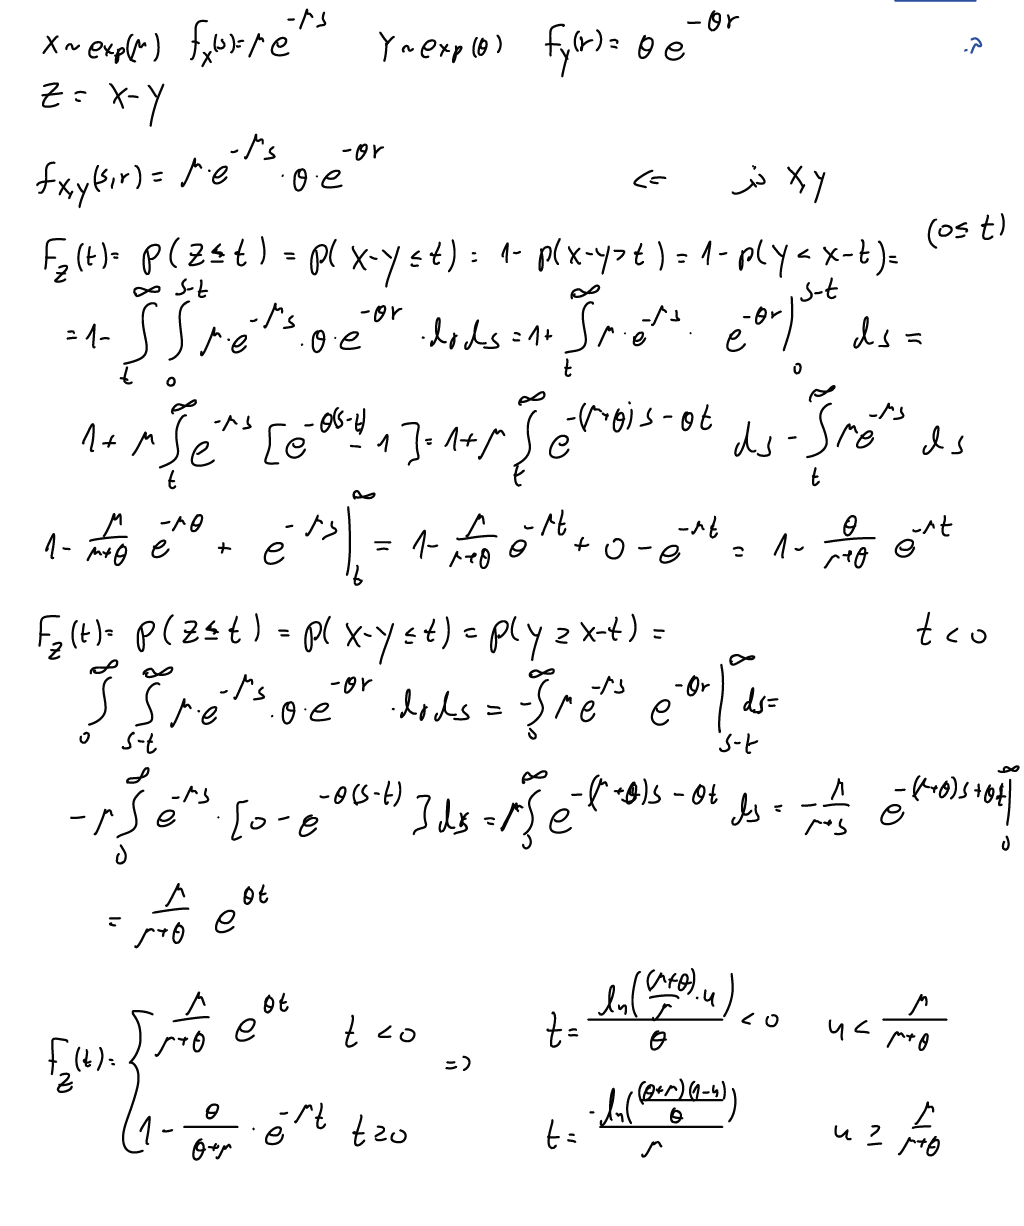 א.
X ~ exp(μ)  f_X(s) = μe^{-μs}  Y ~ exp(θ)  f_Y(r) = θe^{-θr}
Z = X-Y
f_{X,Y}(s,r) = μ·e^{-μs}·θ·e^{-θr}  <=  X,Y
F_Z(t) = P(Z≤t) = P(X-Y≤t) = 1-P(X-Y>t) = 1-P(Y<X-t) =  (0≤t)
= 1-∫_t^∞ ∫_0^{s-t} μ·e^{-μs}·θ·e^{-θr}·drds = 1+∫_t^∞ μ·e^{-μs}· e^{-θr}|_0^{s-t} ds =
1+μ∫_t^∞ e^{-μs}[e^{-θ(s-t)}-1] = 1+μ∫_t^∞ e^{-(μ+θ)s-θt} ds-∫_t^∞ μe^{-μs} ds
1-\frac{μ}{μ+θ} e^{-μθ} + e^{-μs}|_t^∞ = 1-\frac{μ}{μ+θ} e^{-μt} + 0-e^{-μt} = 1-\frac{θ}{μ+θ} e^{-μt}
F_Z(t) = P(Z≤t) = P(X-Y≤t) = P(Y≥X-t) =  t<0
∫_0^∞ ∫_{s-t}^∞ μ·e^{-μs}·θ·e^{-θr}·drds = -∫_0^∞ μe^{-μs} e^{-θr}|_{s-t}^∞ ds =
-μ∫_0^∞ e^{-μs}·[0-e^{-θ(s-t)}]ds = μ∫_0^∞ e^{-(μ+θ)s-θt} ds = -\frac{μ}{μ+s} e^{-(μ+θ)s+θt}|_0^∞
= \frac{μ}{μ+θ} e^{θt}
F_Z(t) = { \frac{μ}{μ+θ} e^{θt}  t<0  =>  t = \frac{ln(\frac{(μ+θ)·u}{μ})}{θ} < 0  u < \frac{μ}{μ+θ}
1-\frac{θ}{θ+μ}·e^{-μt}  t≥0  t = \frac{-ln(\frac{(θ+μ)(1-u)}{θ})}{μ}  u ≥ \frac{μ}{μ+θ}